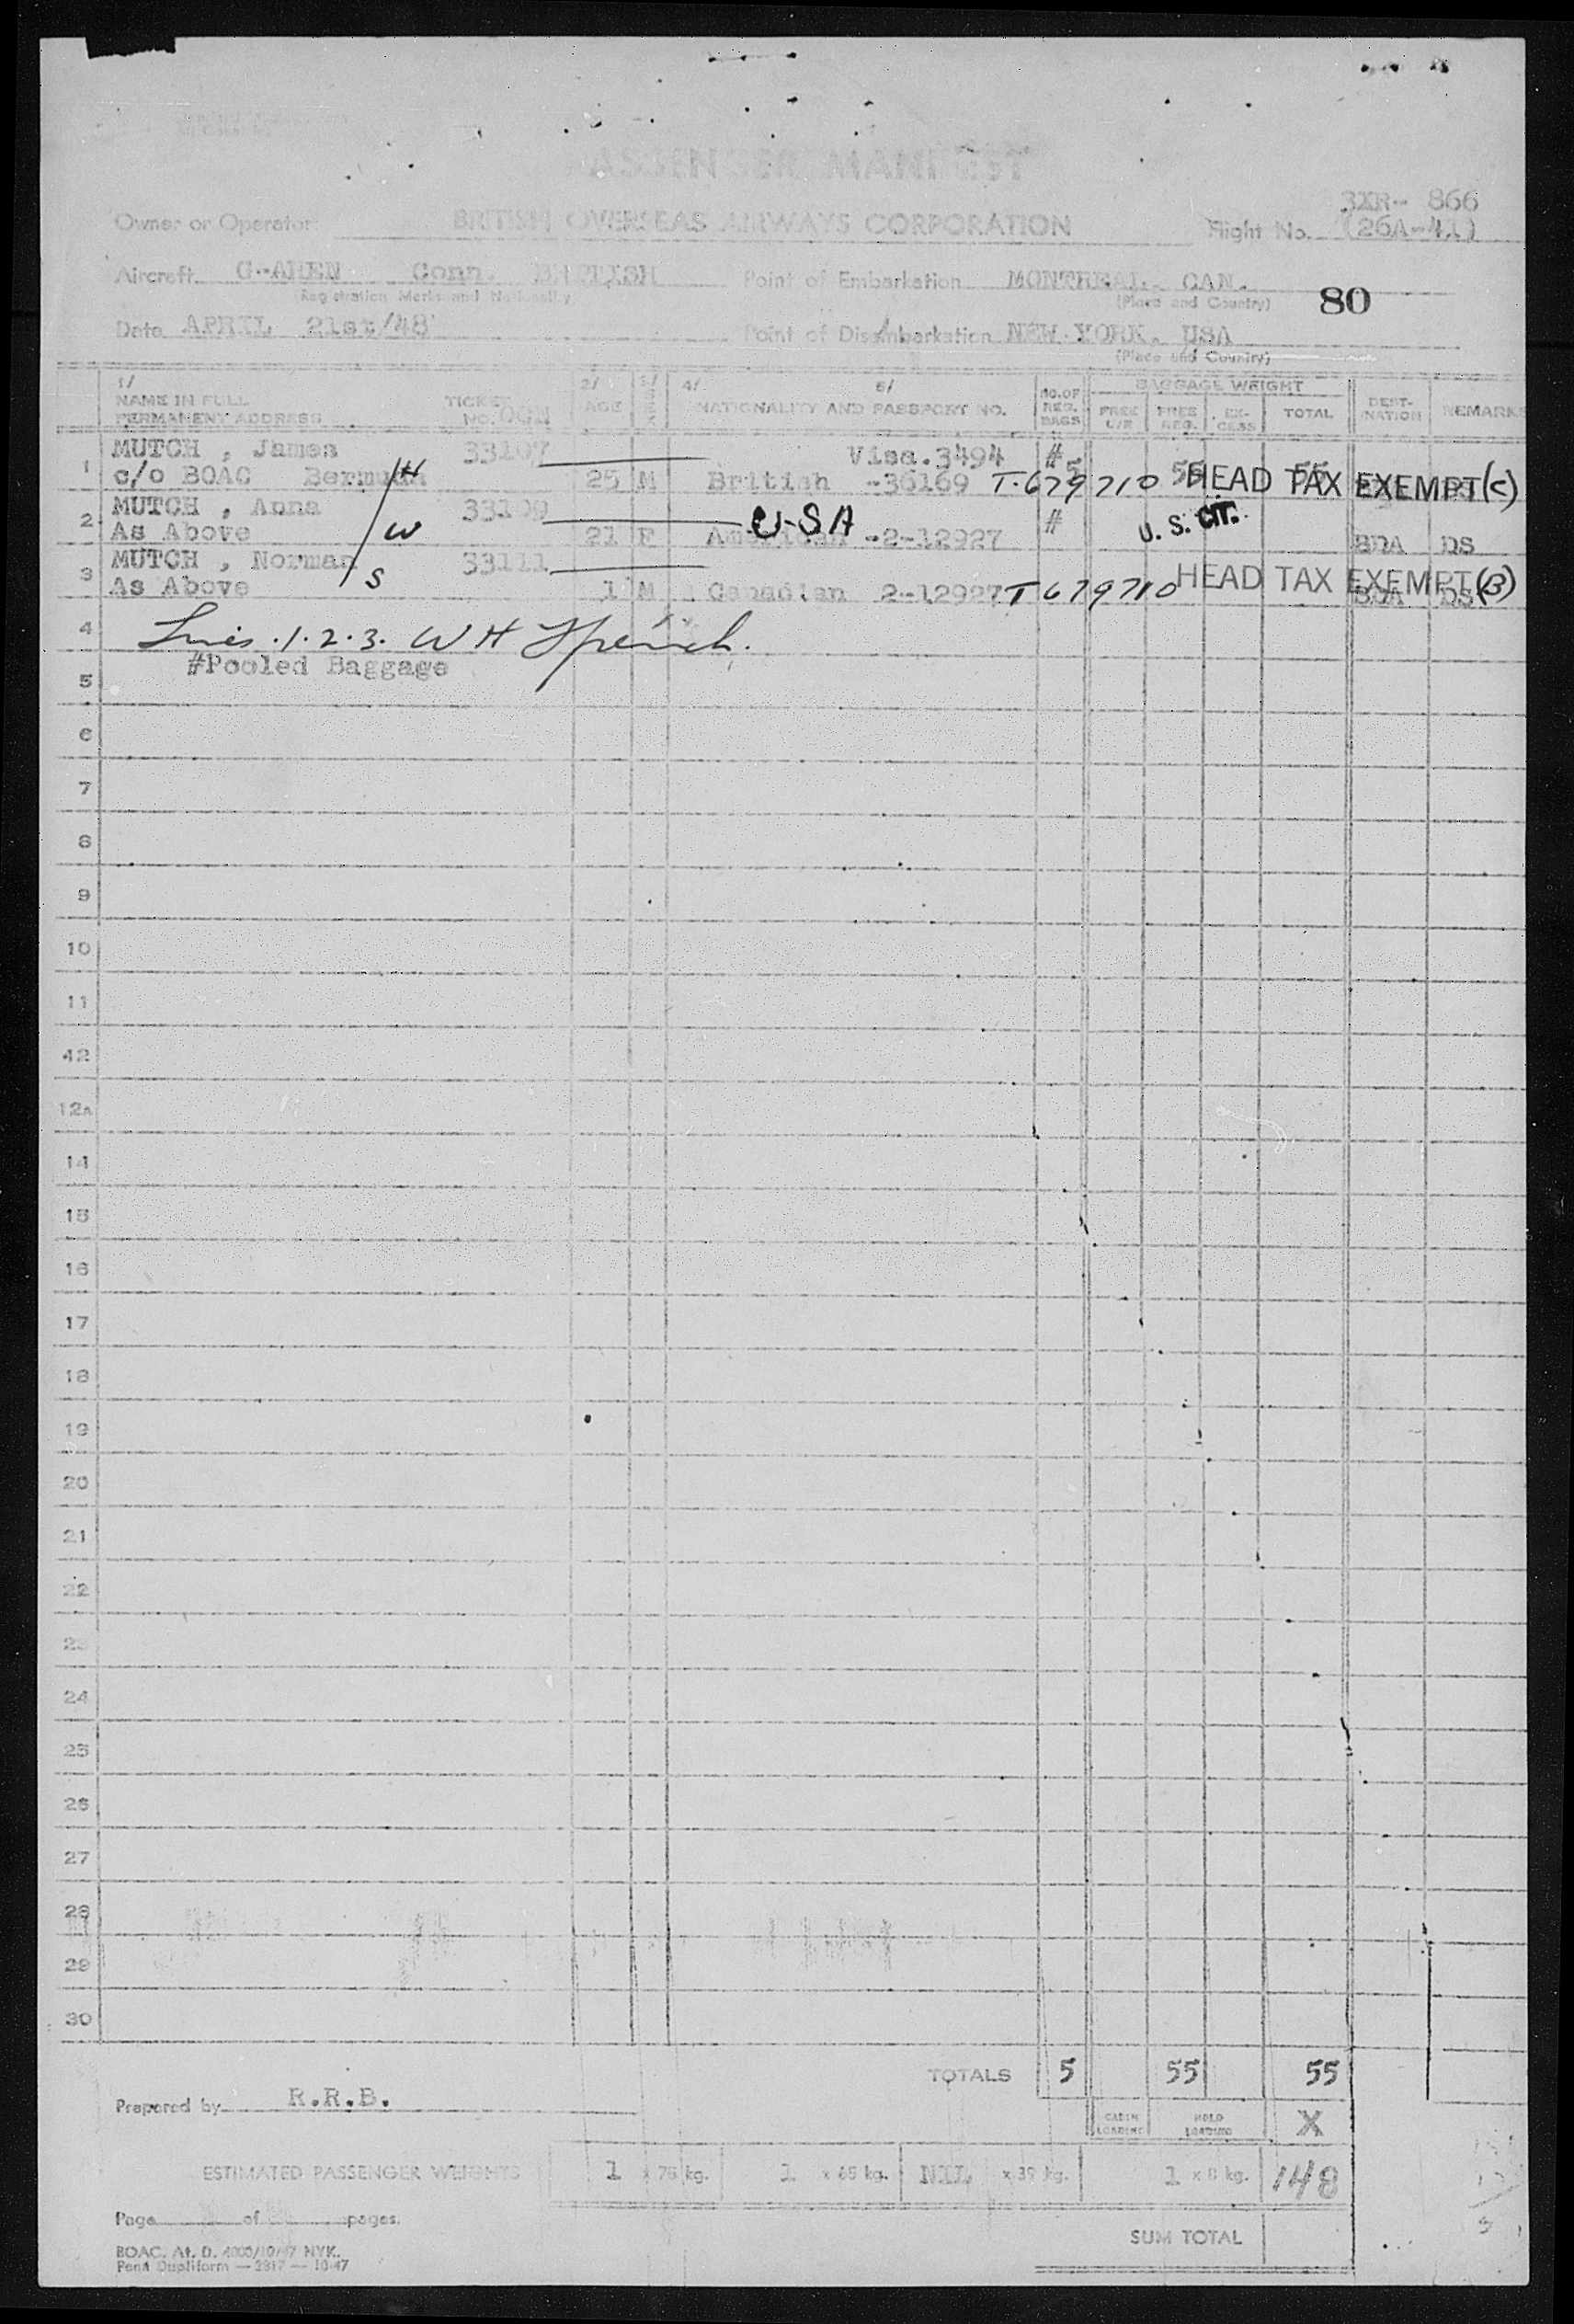 PASSENGER MANIFEST
3XR- 866
Owner or Operator BRITISH OVERSEAS AIRWAYS CORPORATION Flight No. (26A-41)
Aircraft G-AHEN Conn. BRITISH Point of Embarkation MONTREAL. CAN.
(Registration Marks and Nationality) (Place and Country) 80
Date APRIL 21st/48 Point of Disembarkation NEW YORK. USA
(Place and Country)
1/ 2/ 3/ 4/ 5/ NO. OF BAGGAGE WEIGHT
NAME IN FULL TICKET AGE SEX NATIONALITY AND PASSPORT NO. REG. FREE FREE EX- TOTAL DEST- REMARKS
PERMANENT ADDRESS NO. BAGS REG. CESS INATION
MUTCH , James 33107 Visa.3494 #
1 c/o BOAC Bermuda H 25 M British -36169 T-679710 5 55 HEAD TAX EXEMPT (C) 55
MUTCH , Anna 33109 USA # U.S. CIT.
2 As Above W 21 F American -2-12927 BDA DS
MUTCH , Norman 33111 HEAD TAX EXEMPT (B)
3 As Above S 1 M Canadian 2-12927 T 679710 BDA DS
4 Lines 1.2.3. W H
#Pooled Baggage
5
6
7
8
9
10
11
12
12A
14
15
16
17
18
19
20
21
22
23
24
25
26
27
28
29
30
TOTALS 5 55 55
Prepared by R.R.B.
CABIN LOADING HOLD LOADING X
ESTIMATED PASSENGER WEIGHTS 1 x 75 kg. 1 x 65 kg. NIL x 39 kg. 1 x 8 kg. 148
Page of pages.
SUM TOTAL
BOAC. At. D. 4000/10/47 NYK.
Penn Dupliform — 2317 — 10-47